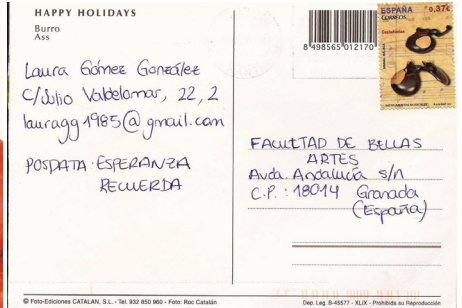 HAPPY HOLIDAYS
Burro
Ass
Laura Gómez González
C/Julio Valdelomar, 22, 2
lauragg1985@gmail.com
POSDATA: ESPERANZA
RECUERDA
8 498565 012170
ESPAÑA 0,37€
CORREOS
Castañuelas
INSTRUMENTOS MUSICALES
FACULTAD DE BELLAS
ARTES
Avda. Andalucía s/n
C.P.: 18014 Granada
(España)
© Foto-Ediciones CATALAN, S.L. - Tel. 932 850 960 - Foto: Roc Catalán
Dep. Leg. B-45577 - XLIX - Prohibida su Reproducción